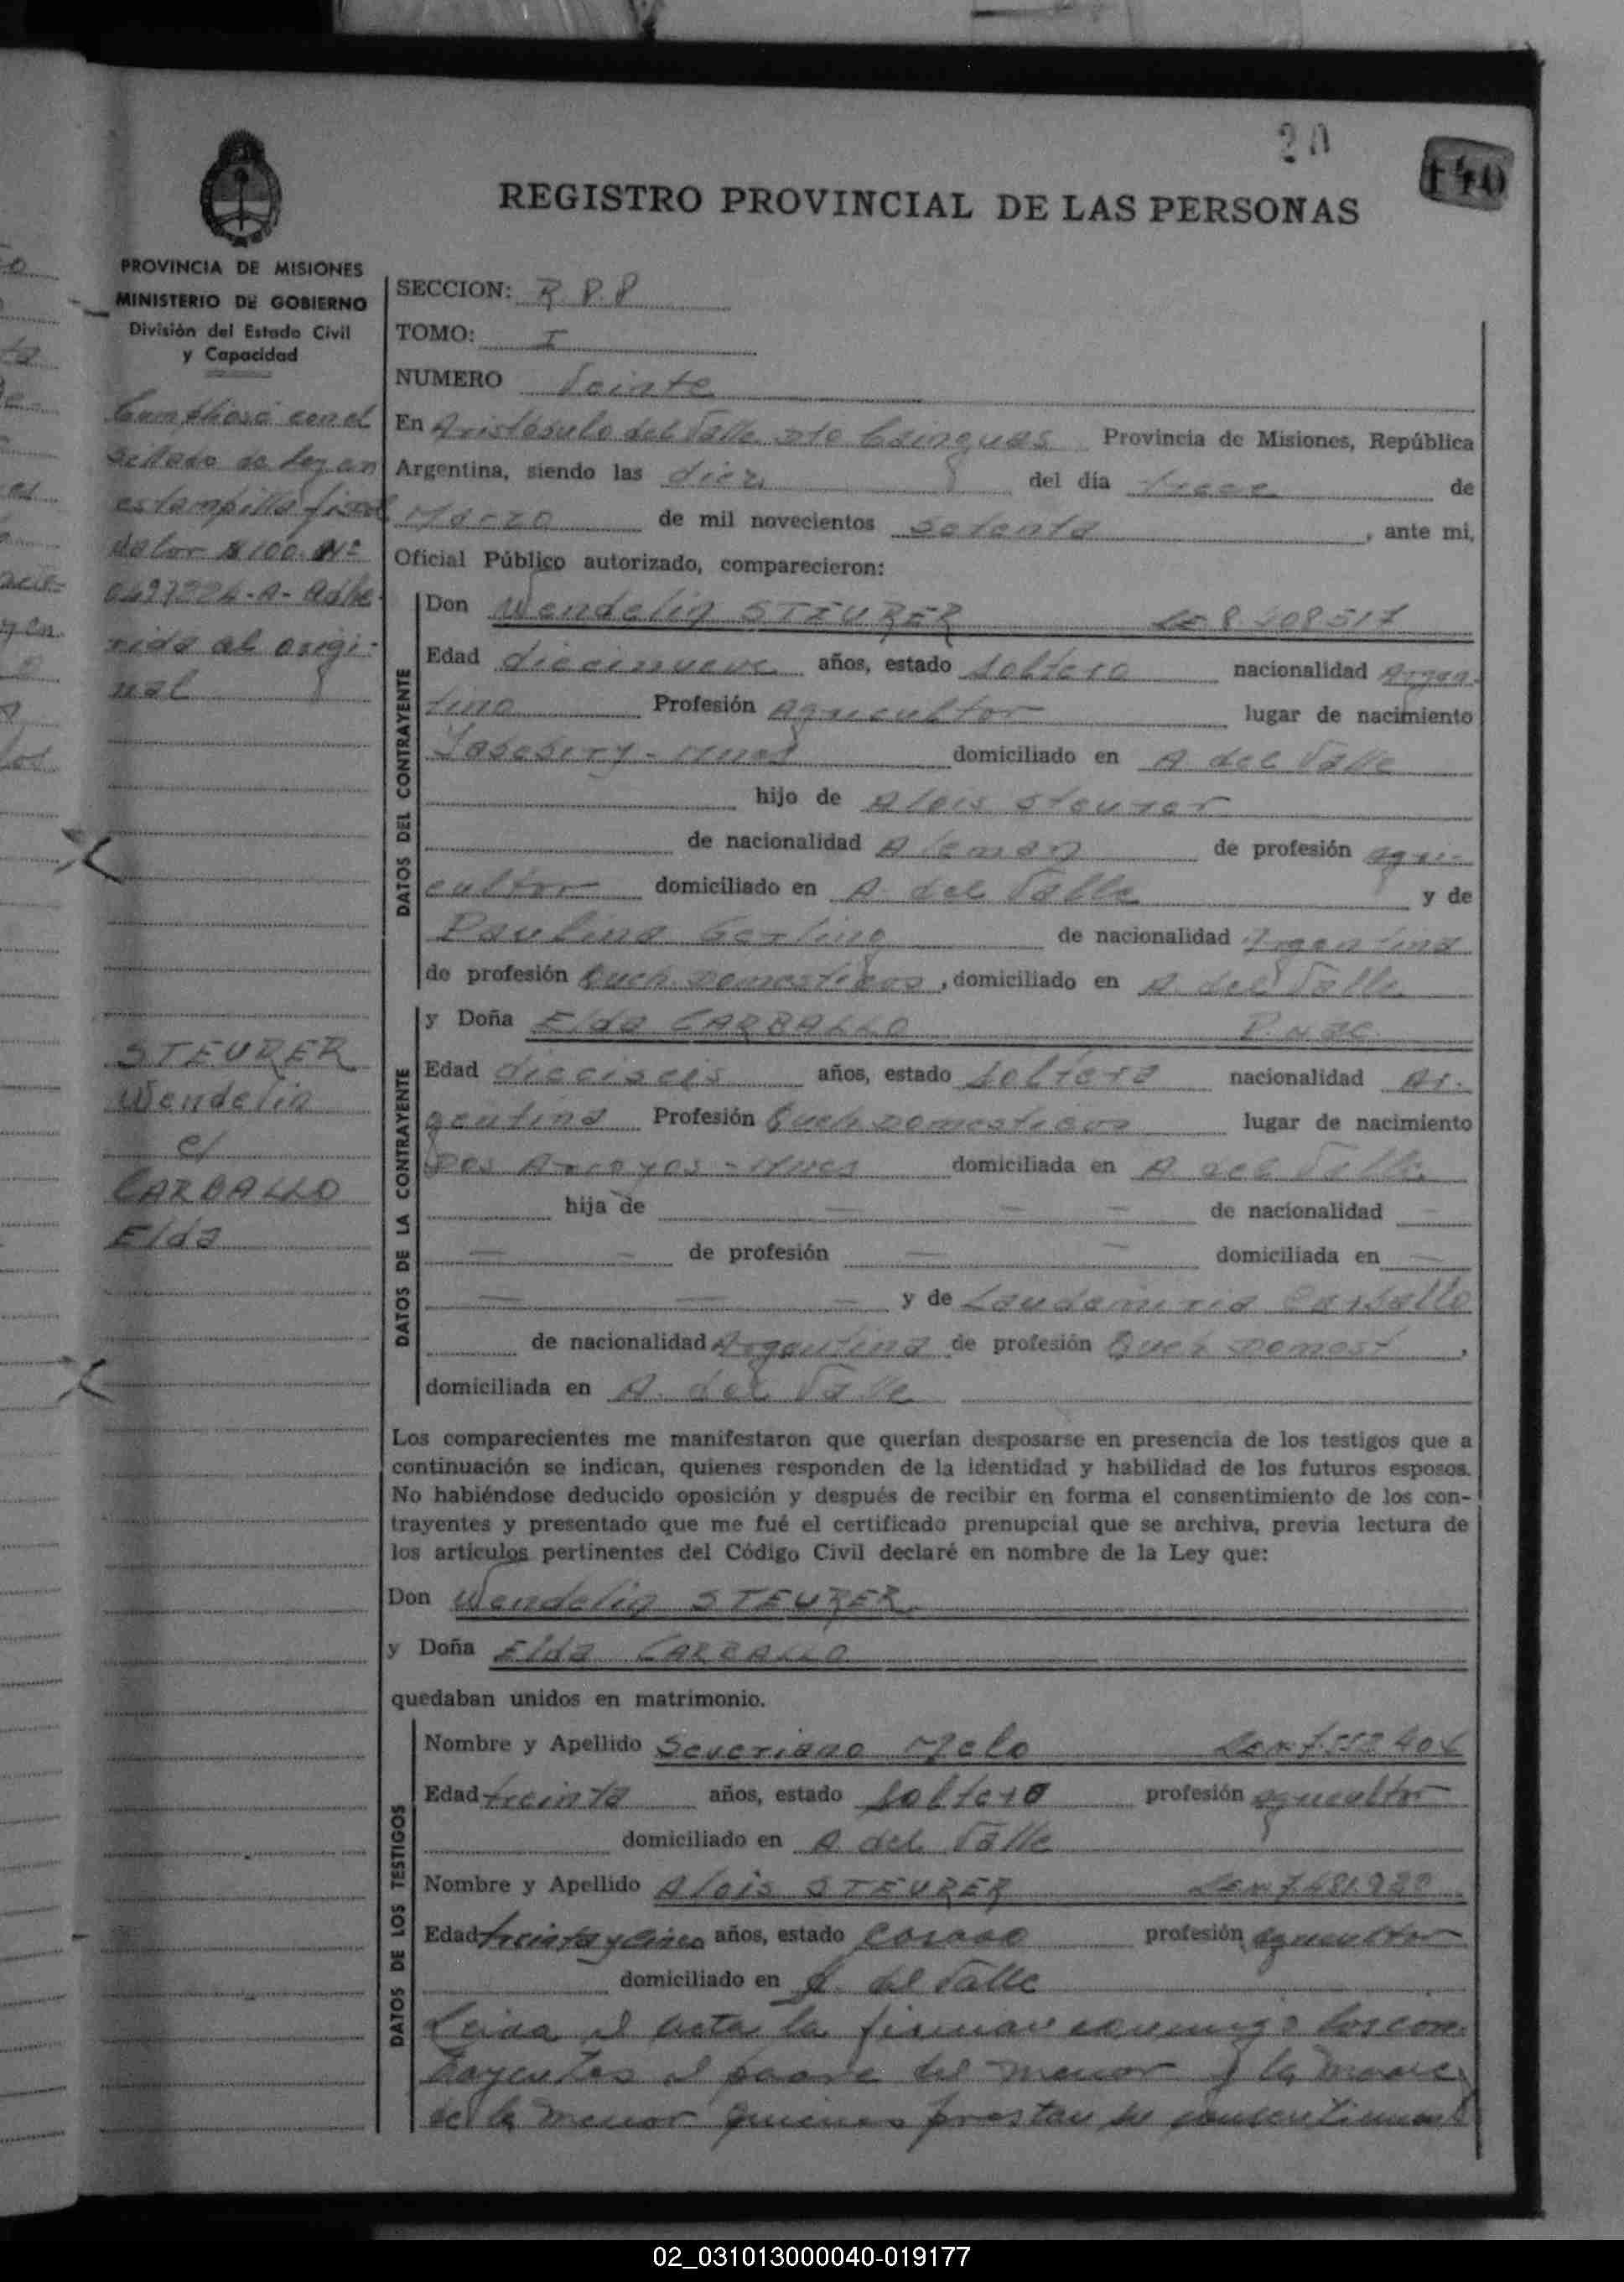 20
140
REGISTRO PROVINCIAL DE LAS PERSONAS
PROVINCIA DE MISIONES
MINISTERIO DE GOBIERNO
División del Estado Civil
y Capacidad
Cumpliose con el
sellado de ley en
estampilla fiscal
valor $ 100. Nº
A- adhe
rida al origi-
nal
STEURER
Wendelin
c/
CARBALLO
Elda
SECCION: R.P.P
TOMO: I
NUMERO Veinte
En Aristóbulo del Valle Dto Cainguas Provincia de Misiones, República
Argentina, siendo las diez del día trece de
Marzo de mil novecientos setenta, ante mi,
Oficial Público autorizado, comparecieron:
DATOS DEL CONTRAYENTE
Don Wendelin STEURER LE 8 408 517
Edad diecinueve años, estado soltero nacionalidad Argen-
tino Profesión Agricultor lugar de nacimiento
domiciliado en A del Valle
hijo de Alois Steurer
de nacionalidad Aleman de profesión agri-
cultor domiciliado en A. del Valle y de
Paulina Gerling de nacionalidad Argentina
de profesión Queh. Domesticos, domiciliado en A. del Valle
DATOS DE LA CONTRAYENTE
y Doña Elda CARBALLO
Edad dieciseis años, estado soltera nacionalidad Ar-
gentina Profesión Queh Domesticos lugar de nacimiento
Dos Arroyos - Mnes domiciliada en A del Valle
hija de — — — de nacionalidad —
— — de profesión — — domiciliada en —
— — — y de Laudamiria Carballo
de nacionalidad Argentina de profesión Queh Domest,
domiciliada en A. del Valle
Los comparecientes me manifestaron que querían desposarse en presencia de los testigos que a
continuación se indican, quienes responden de la identidad y habilidad de los futuros esposos.
No habiéndose deducido oposición y después de recibir en forma el consentimiento de los con-
trayentes y presentado que me fué el certificado prenupcial que se archiva, previa lectura de
los artículos pertinentes del Código Civil declaré en nombre de la Ley que:
Don Wendelin STEURER
y Doña Elda CARBALLO
quedaban unidos en matrimonio.
DATOS DE LOS TESTIGOS
Nombre y Apellido Severiano Melo
Edad treinta años, estado soltero profesión agricultor
domiciliado en A del Valle
Nombre y Apellido Alois STEURER
Edad treinta y cinco años, estado casado profesión agricultor
domiciliado en A. del Valle
Leida el acta la firman conmigo los con-
trayentes el padre del menor y la madre
de la menor quienes prestan su consentimient
02_031013000040-019177